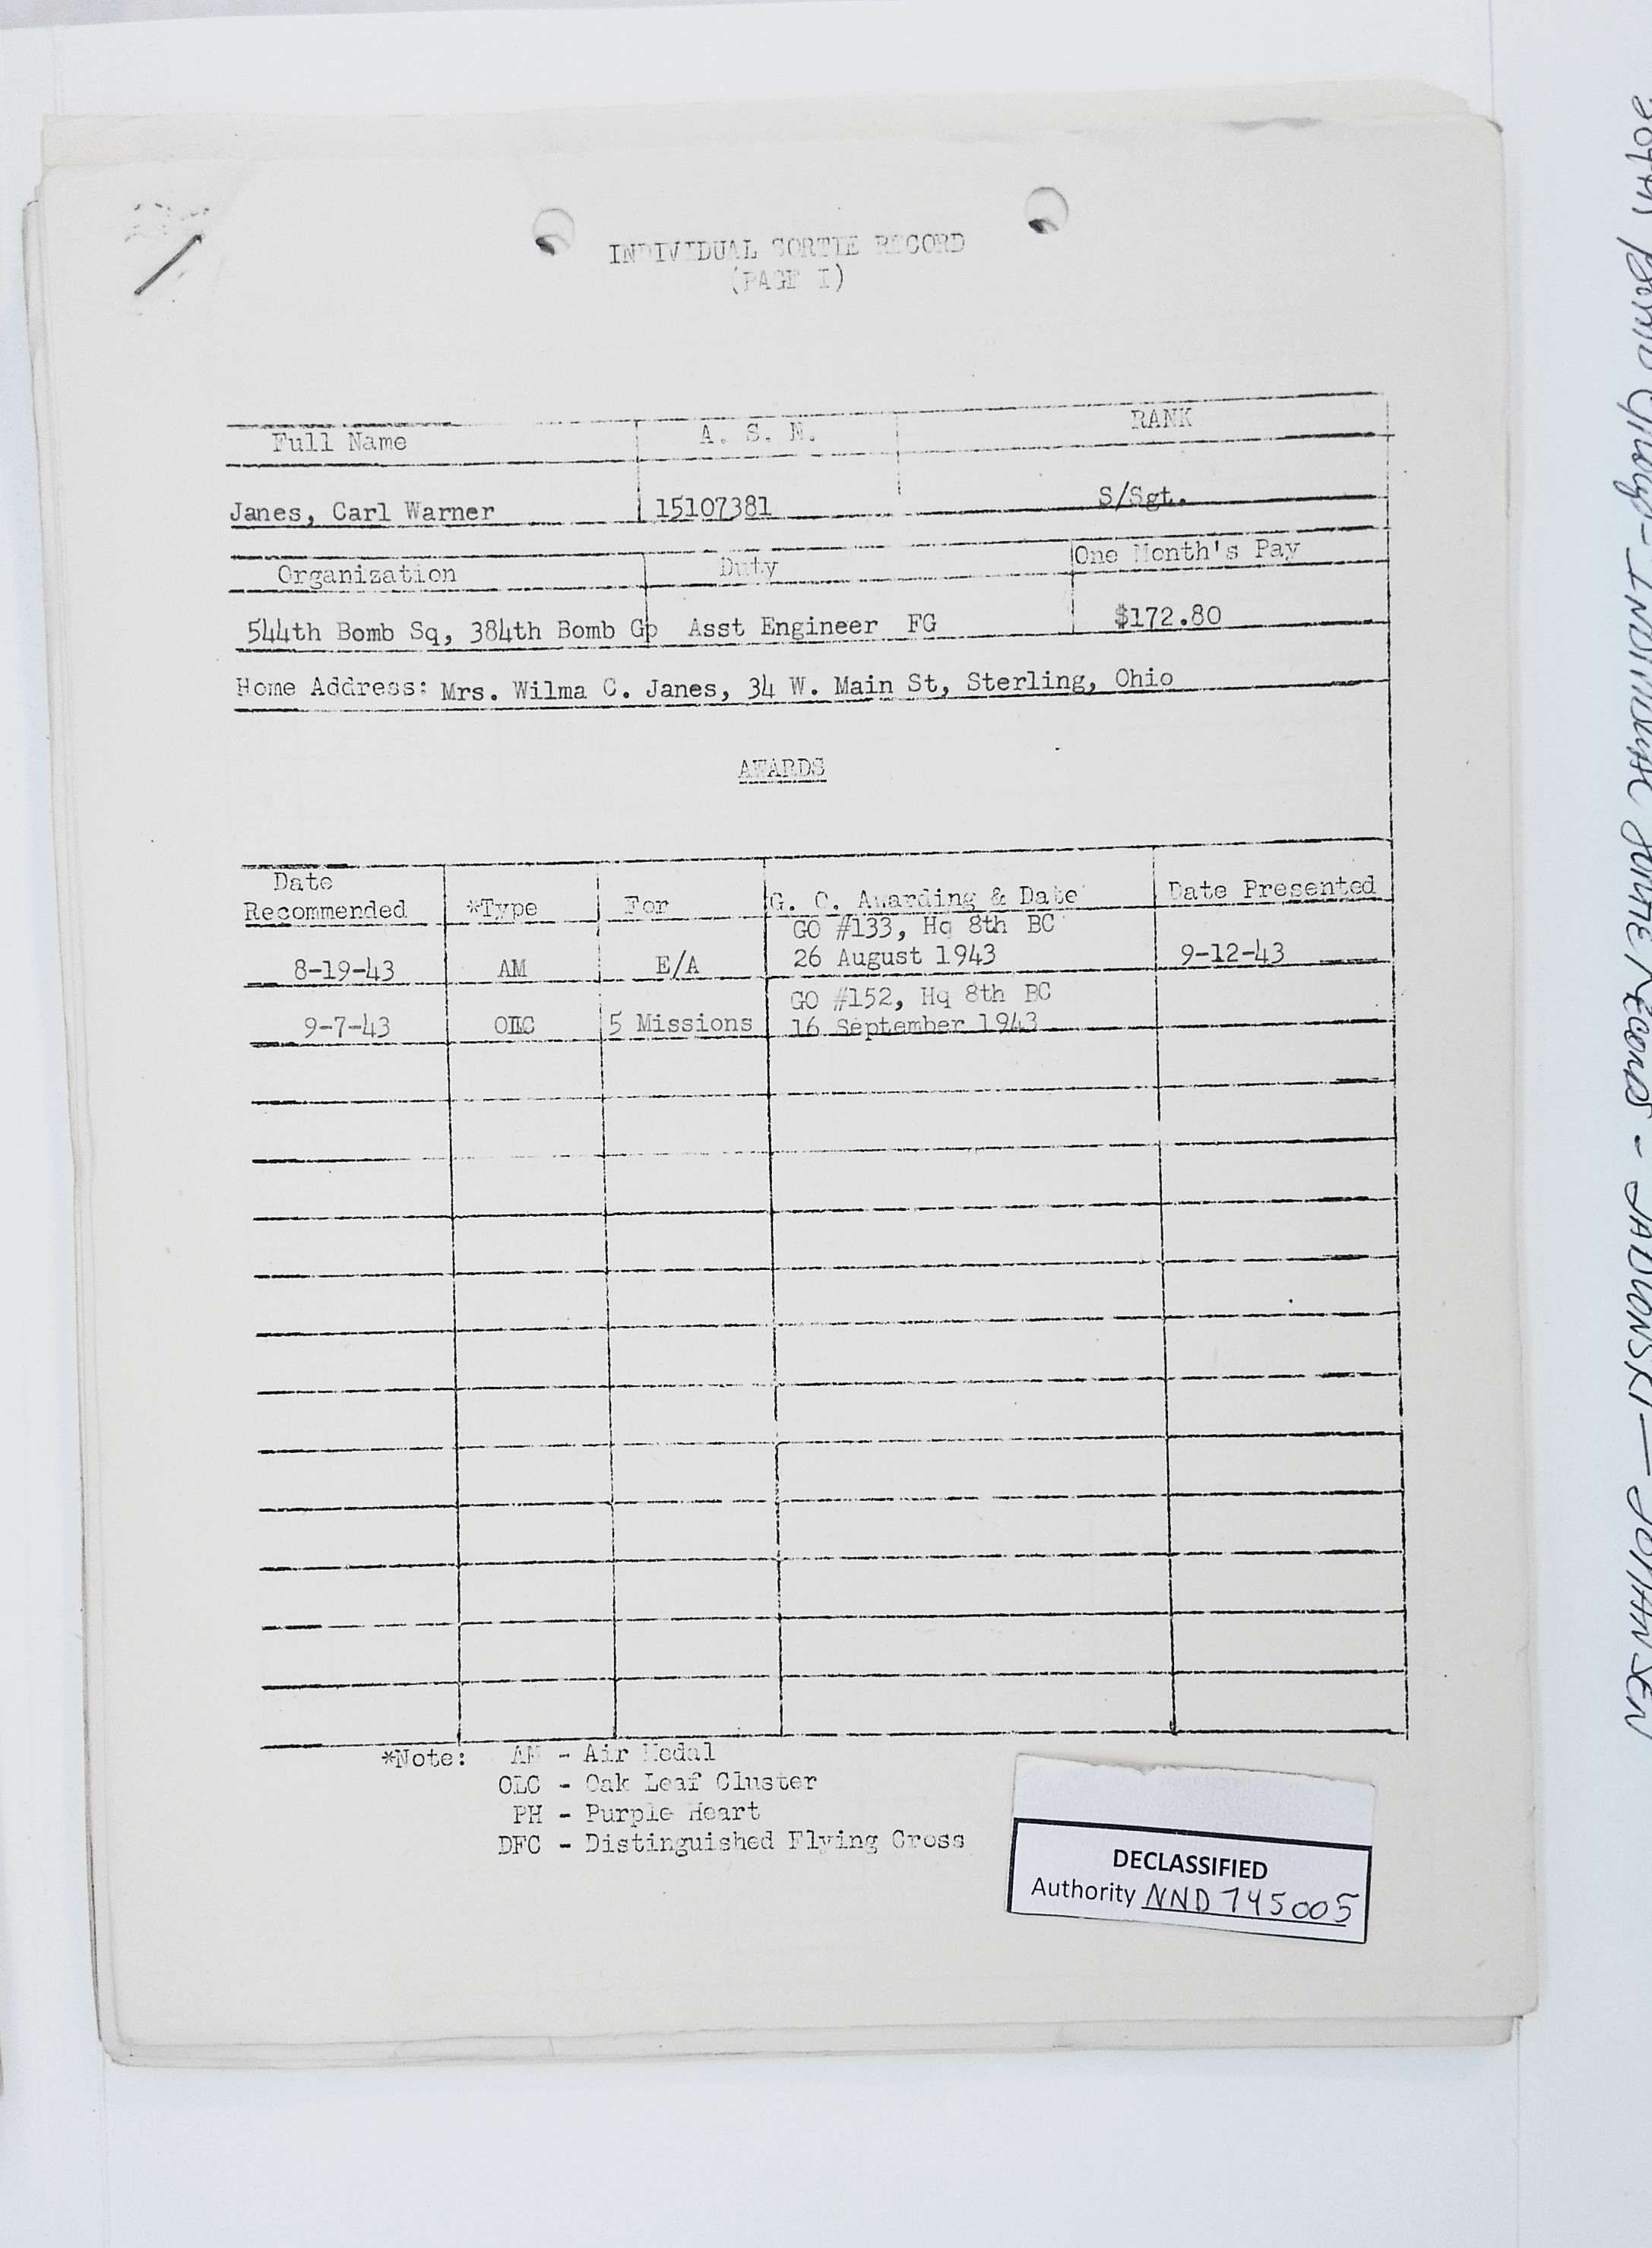 INDIVIDUAL SORTIE RECORD
(PAGE I)
Full Name A. S. N. RANK
Janes, Carl Warner 15107381 S/Sgt.
Organization Duty One Month's Pay
544th Bomb Sq, 384th Bomb Gp Asst Engineer FG $172.80
Home Address: Mrs. Wilma C. Janes, 34 W. Main St, Sterling, Ohio
AWARDS
Date
Recommended *Type For G. C. Awarding & Date Date Presented
GO #133, Hq 8th BC
8-19-43 AM E/A 26 August 1943 9-12-43
GO #152, Hq 8th BC
9-7-43 OLC 5 Missions 16 September 1943
*Note: AM - Air Medal
OLC - Oak Leaf Cluster
PH - Purple Heart
DFC - Distinguished Flying Cross
DECLASSIFIED
Authority NND 745005
384th Bomb Group - Individual Sortie Records - JABLONSKI — JOHANSEN